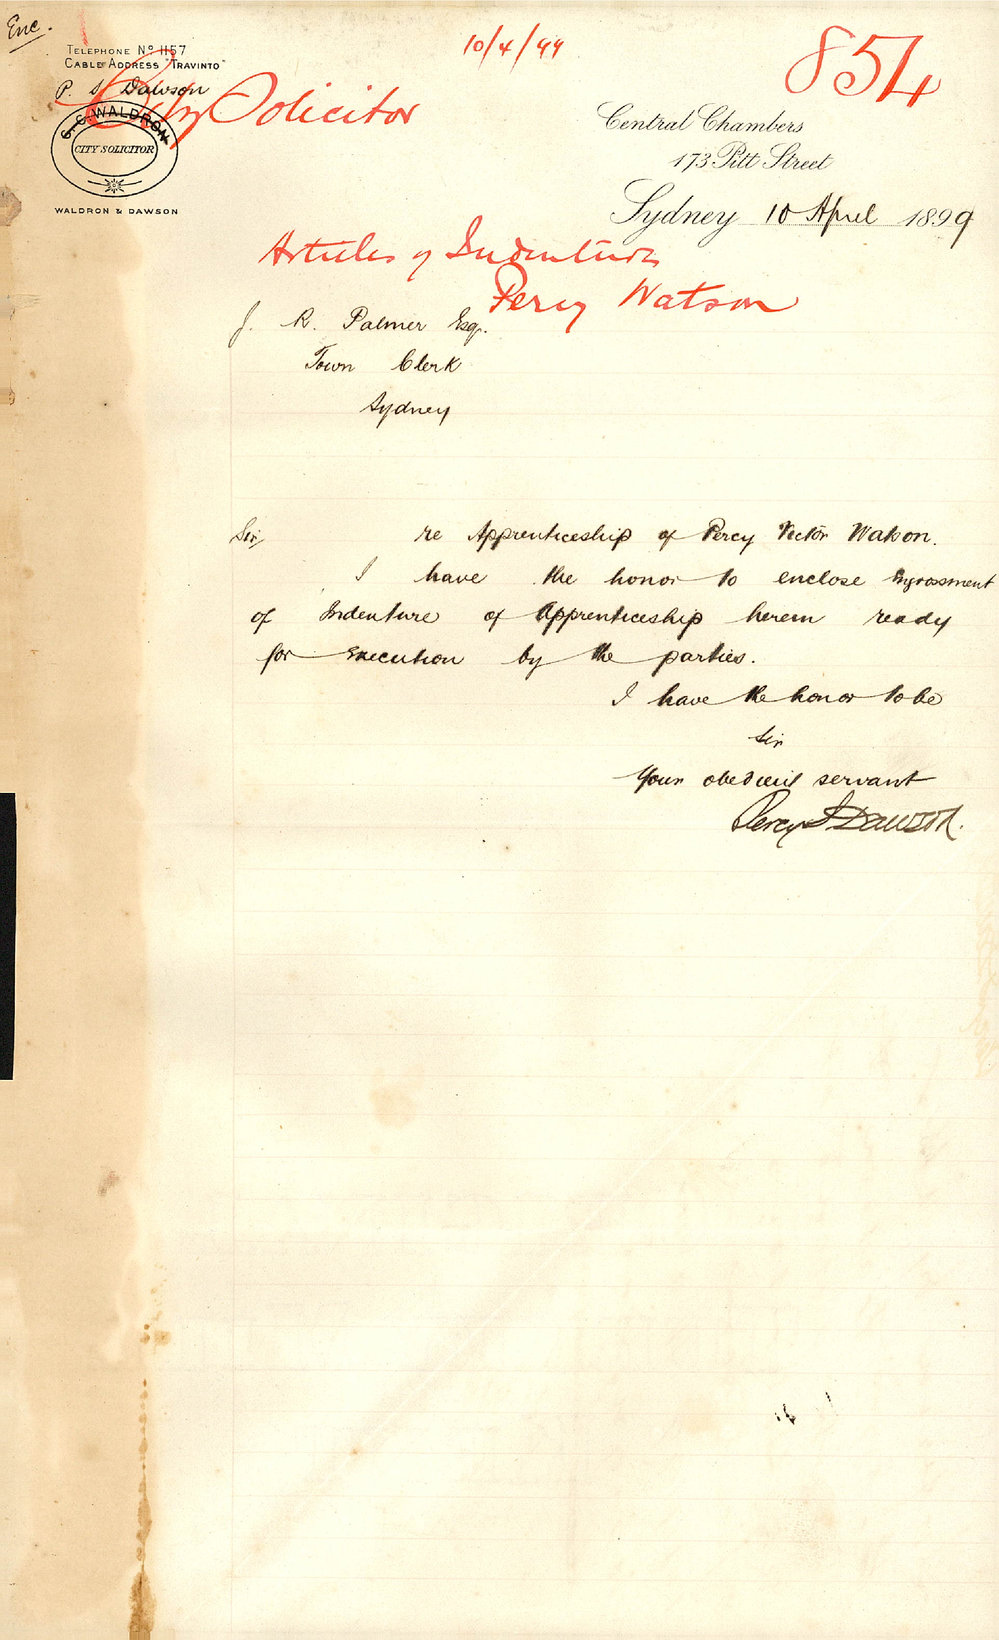 Enc.
10/4/99
854
TELEPHONE No 1157
CABLE ADDRESS "TRAVINTO"
P. S. Dawson
City Solicitor
G.C. WALDRON
CITY SOLICITOR
WALDRON & DAWSON
Central Chambers
173 Pitt Street
Sydney 10 April 1899
Articles of Indenture
Percy Watson
J. R. Palmer Esq.
Town Clerk
Sydney
Sir
re Apprenticeship of Percy Victor Watson.
I have the honor to enclose engrossment
of Indenture of Apprenticeship herein ready
for execution by the parties.
I have the honor to be
Sir
Your obedient servant
Percy S Dawson.